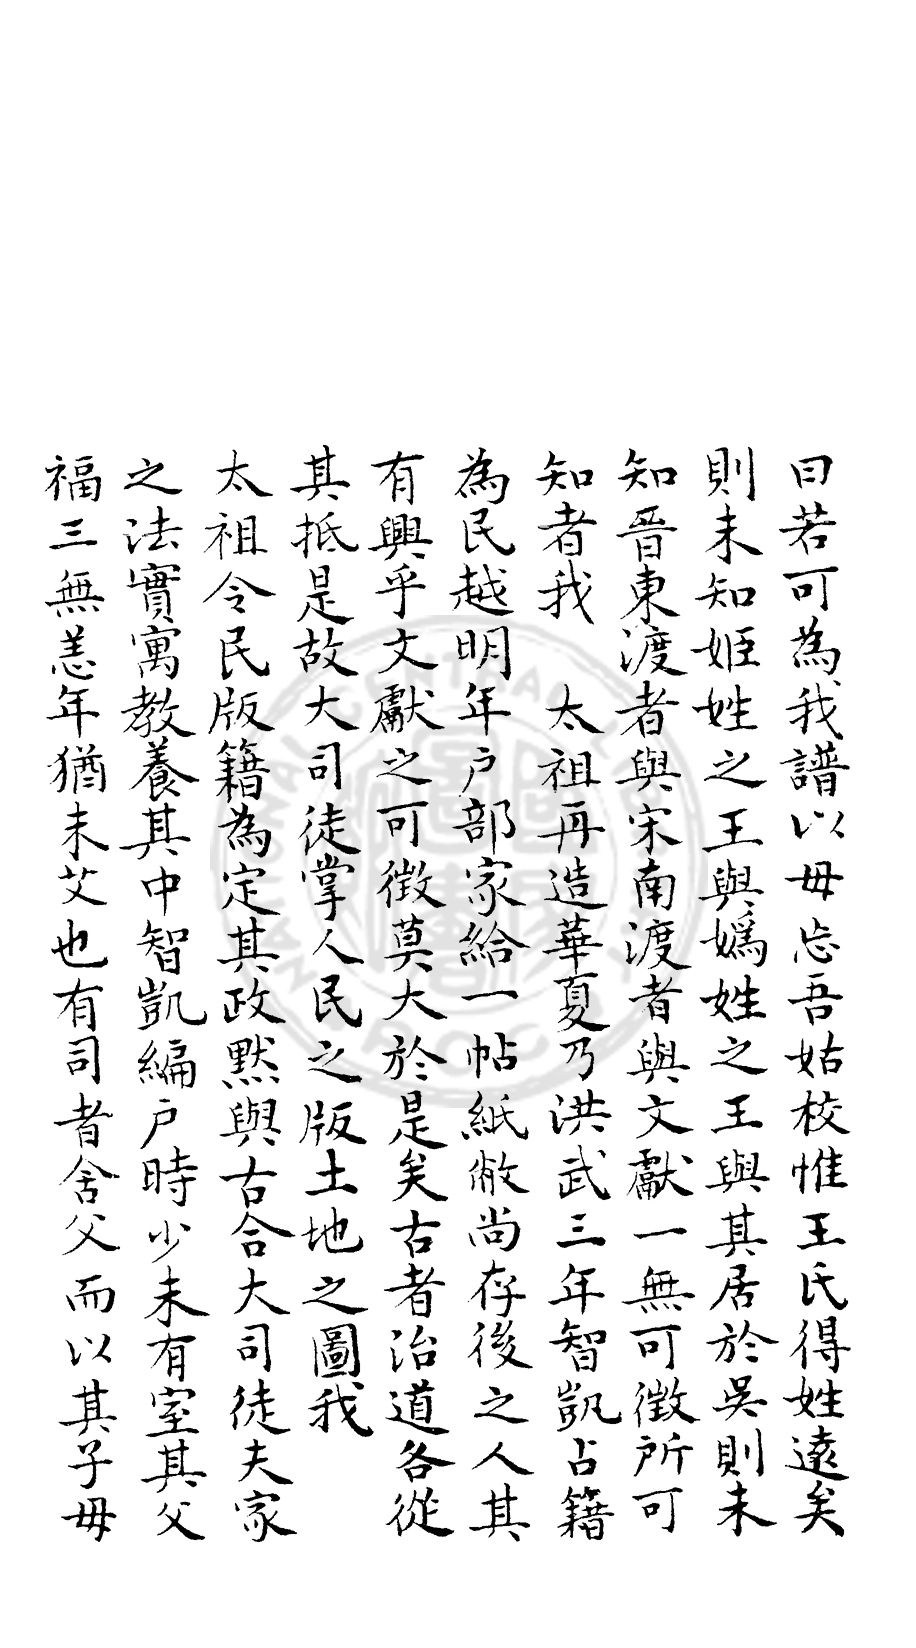 曰若可為我譜以毋忘吾姑校惟王氏得姓遠矣
則未知姬姓之王與媯姓之王與其居於吳則未
知晉東渡者與宋南渡者與文獻一無可徵所可
知者我 太祖再造華夏乃洪武三年智凱占籍
為民越明年户部家給一帖紙敝尚存後之人其
有興乎文獻之可徵莫大於是矣古者治道各從
其抵是故大司徒掌人民之版土地之圖我
太祖令民版籍為定其政默與古合大司徒夫家
之法實寓教養其中智凱編户時少未有室其父
福三無恙年猶未艾也有司者舍父而以其子毋